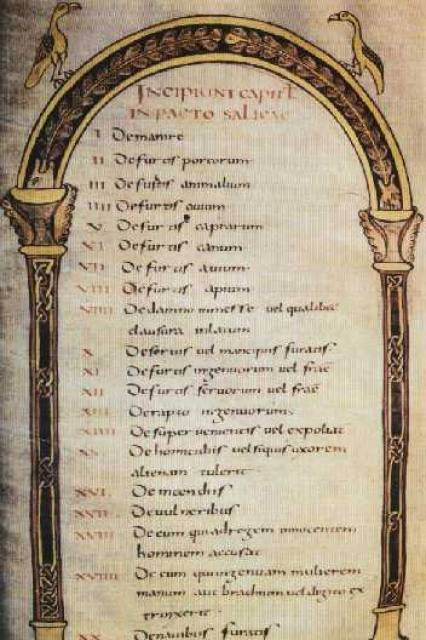 INCIPIUNT CAPITŁ
IN PACTO SALICAE
I De mannire
II De furtis porcorum
III De furtis animalium
IIII De furtis ouium
V De furtis caprarum
VI De furtis canum
VII De furtis auium
VIII De furtis apium
VIIII De damno in messe vel qualibet
clausura inlatum
X De seruis vel mancipiis furatis
XI De furtis ingenuorum vel frac
XII De furtis seruorum vel frac
XIII De rapto ingenuorum
XIIII De superuenientis vel expoliat
XV De homicidiis vel si quis uxorem
alienam tulerit
XVI De incendiis
XVII De vulneribus
XVIII De eum qui ad regem innocentem
hominem accusat
XVIIII De eum qui ingenuam mulierem
manum aut brachium vel digito ex
trinxerit
XX De nauibus furatis